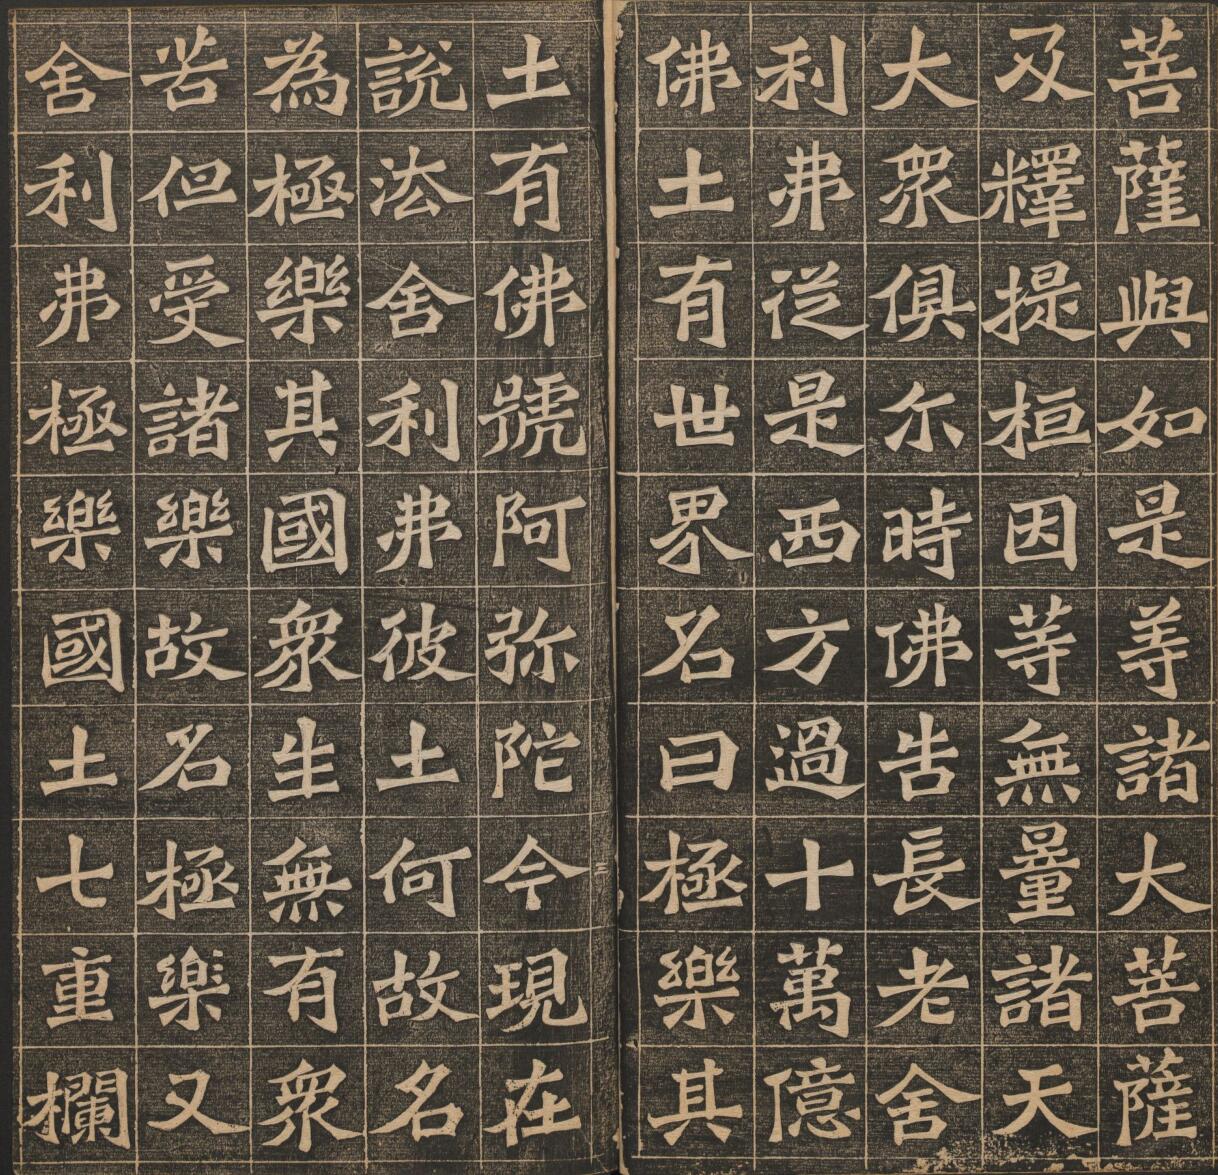 菩薩與如是等諸大菩薩
及釋提桓因等無量諸天
大眾俱尒時佛告長老舍
利弗從是西方過十萬億
佛土有世界名曰極樂其
土有佛號阿弥陀今現在
說法舍利弗彼土何故名
為極樂其國眾生無有眾
苦但受諸樂故名極樂又
舍利弗極樂國土七重欄